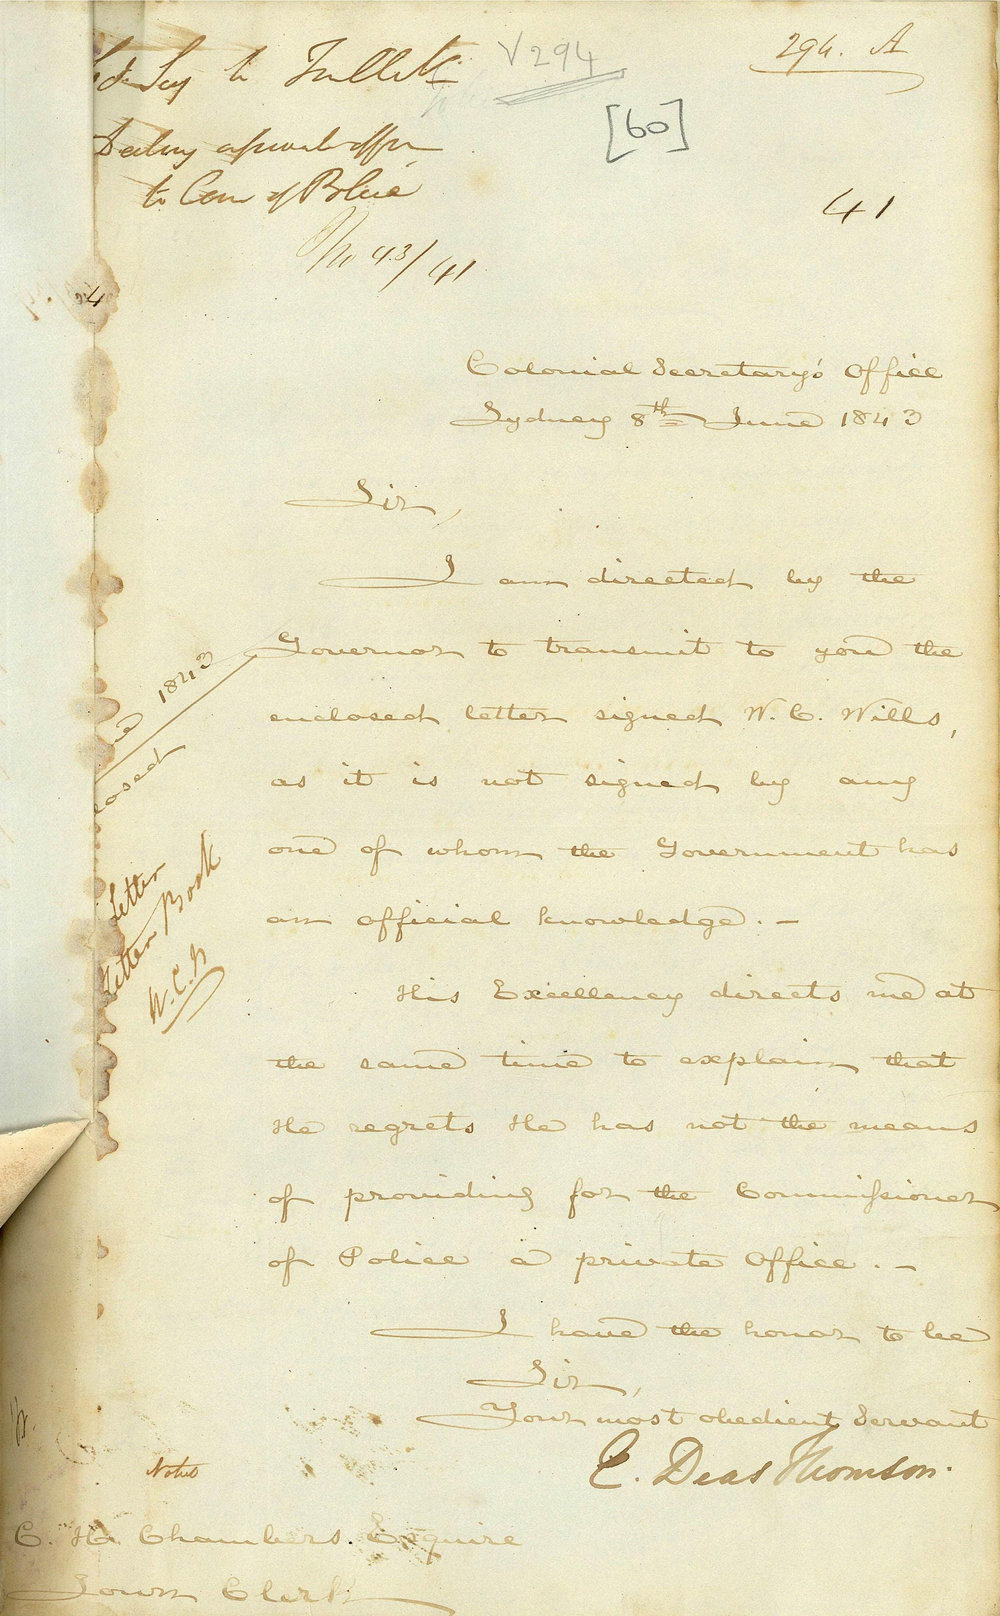 to
to Com of Police
No 43/41
V 294
294. A
[60]
41
4
Colonial Secretary's Office
Sydney 8th June 1843
Sir,
I am directed by the
Governor to transmit to you the
enclosed letter signed W. C. Wills,
as it is not signed by any
one of whom the Government has
an official knowledge. -
His Excellency directs me at
the same time to explain that
He regrets He has not the means
of providing for the Commissioner
of Police a private Office. -
I have the honor to be
Sir,
Your most obedient Servant
E. Deas Thomson.
1843
Letter
Letter Book
Notes
C. H. Chambers. Esquire
Town Clerk